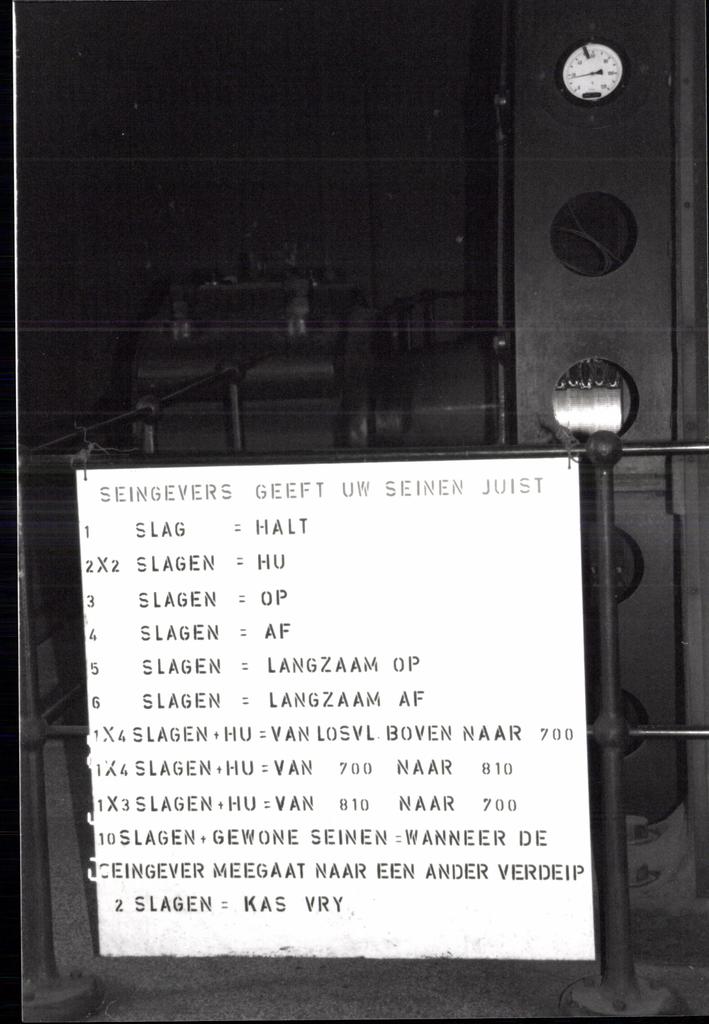 SEINGEVERS GEEFT UW SEINEN JUIST
1 SLAG = HALT
2X2 SLAGEN = HU
3 SLAGEN = OP
4 SLAGEN = AF
5 SLAGEN = LANGZAAM OP
6 SLAGEN = LANGZAAM AF
1X4 SLAGEN + HU = VAN LOSVL. BOVEN NAAR 700
1X4 SLAGEN + HU = VAN 700 NAAR 810
1X3 SLAGEN + HU = VAN 810 NAAR 700
10 SLAGEN + GEWONE SEINEN = WANNEER DE
SEINGEVER MEEGAAT NAAR EEN ANDER VERDEIP
2 SLAGEN = KAS VRY